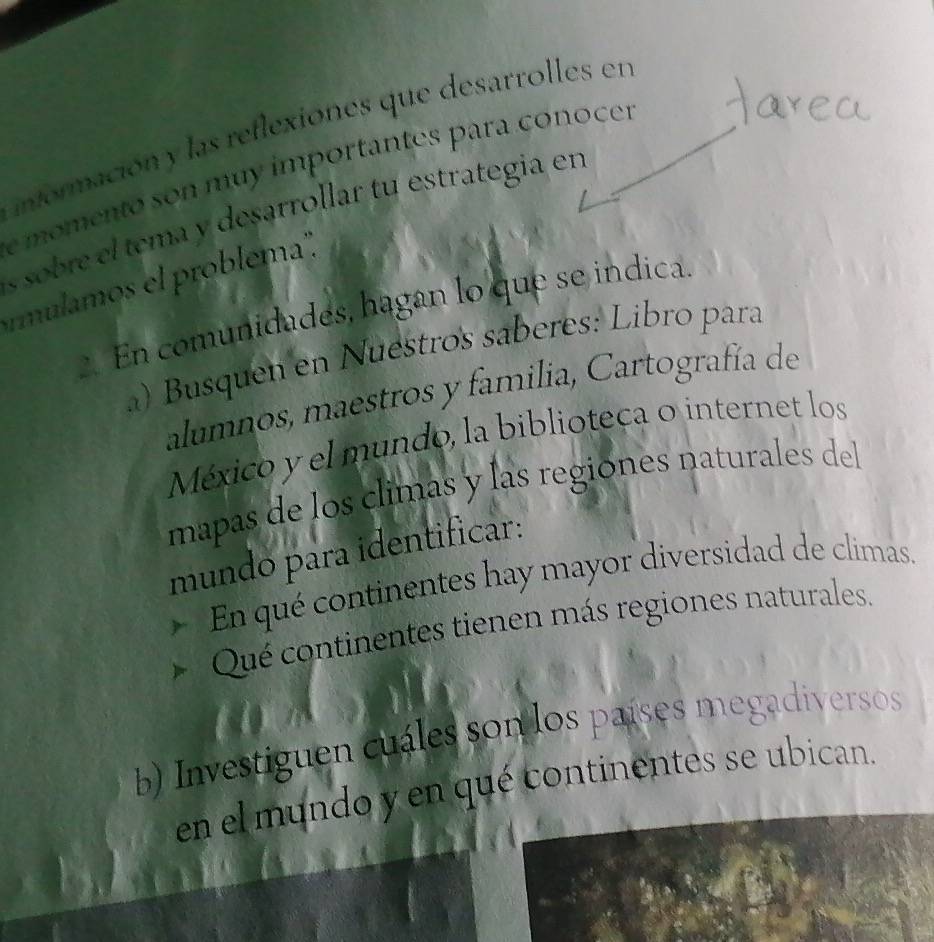 información y las reflexiones que desarrolles en
momento son muy importantes para conocer
sobre el tema y desarrollar tu estrategia en
el problema".
tarea
2. En comunidades, hagan lo que se indica.
a) Busquen en Nuestros saberes: Libro para
alumnos, maestros y familia, Cartografía de
México y el mundo, la biblioteca o internet los
mapas de los climas y las regiones naturales del
mundo para identificar:
En qué continentes hay mayor diversidad de climas.
Qué continentes tienen más regiones naturales.
b) Investiguen cuáles son los países megadiversos
en el mundo y en qué continentes se ubican.